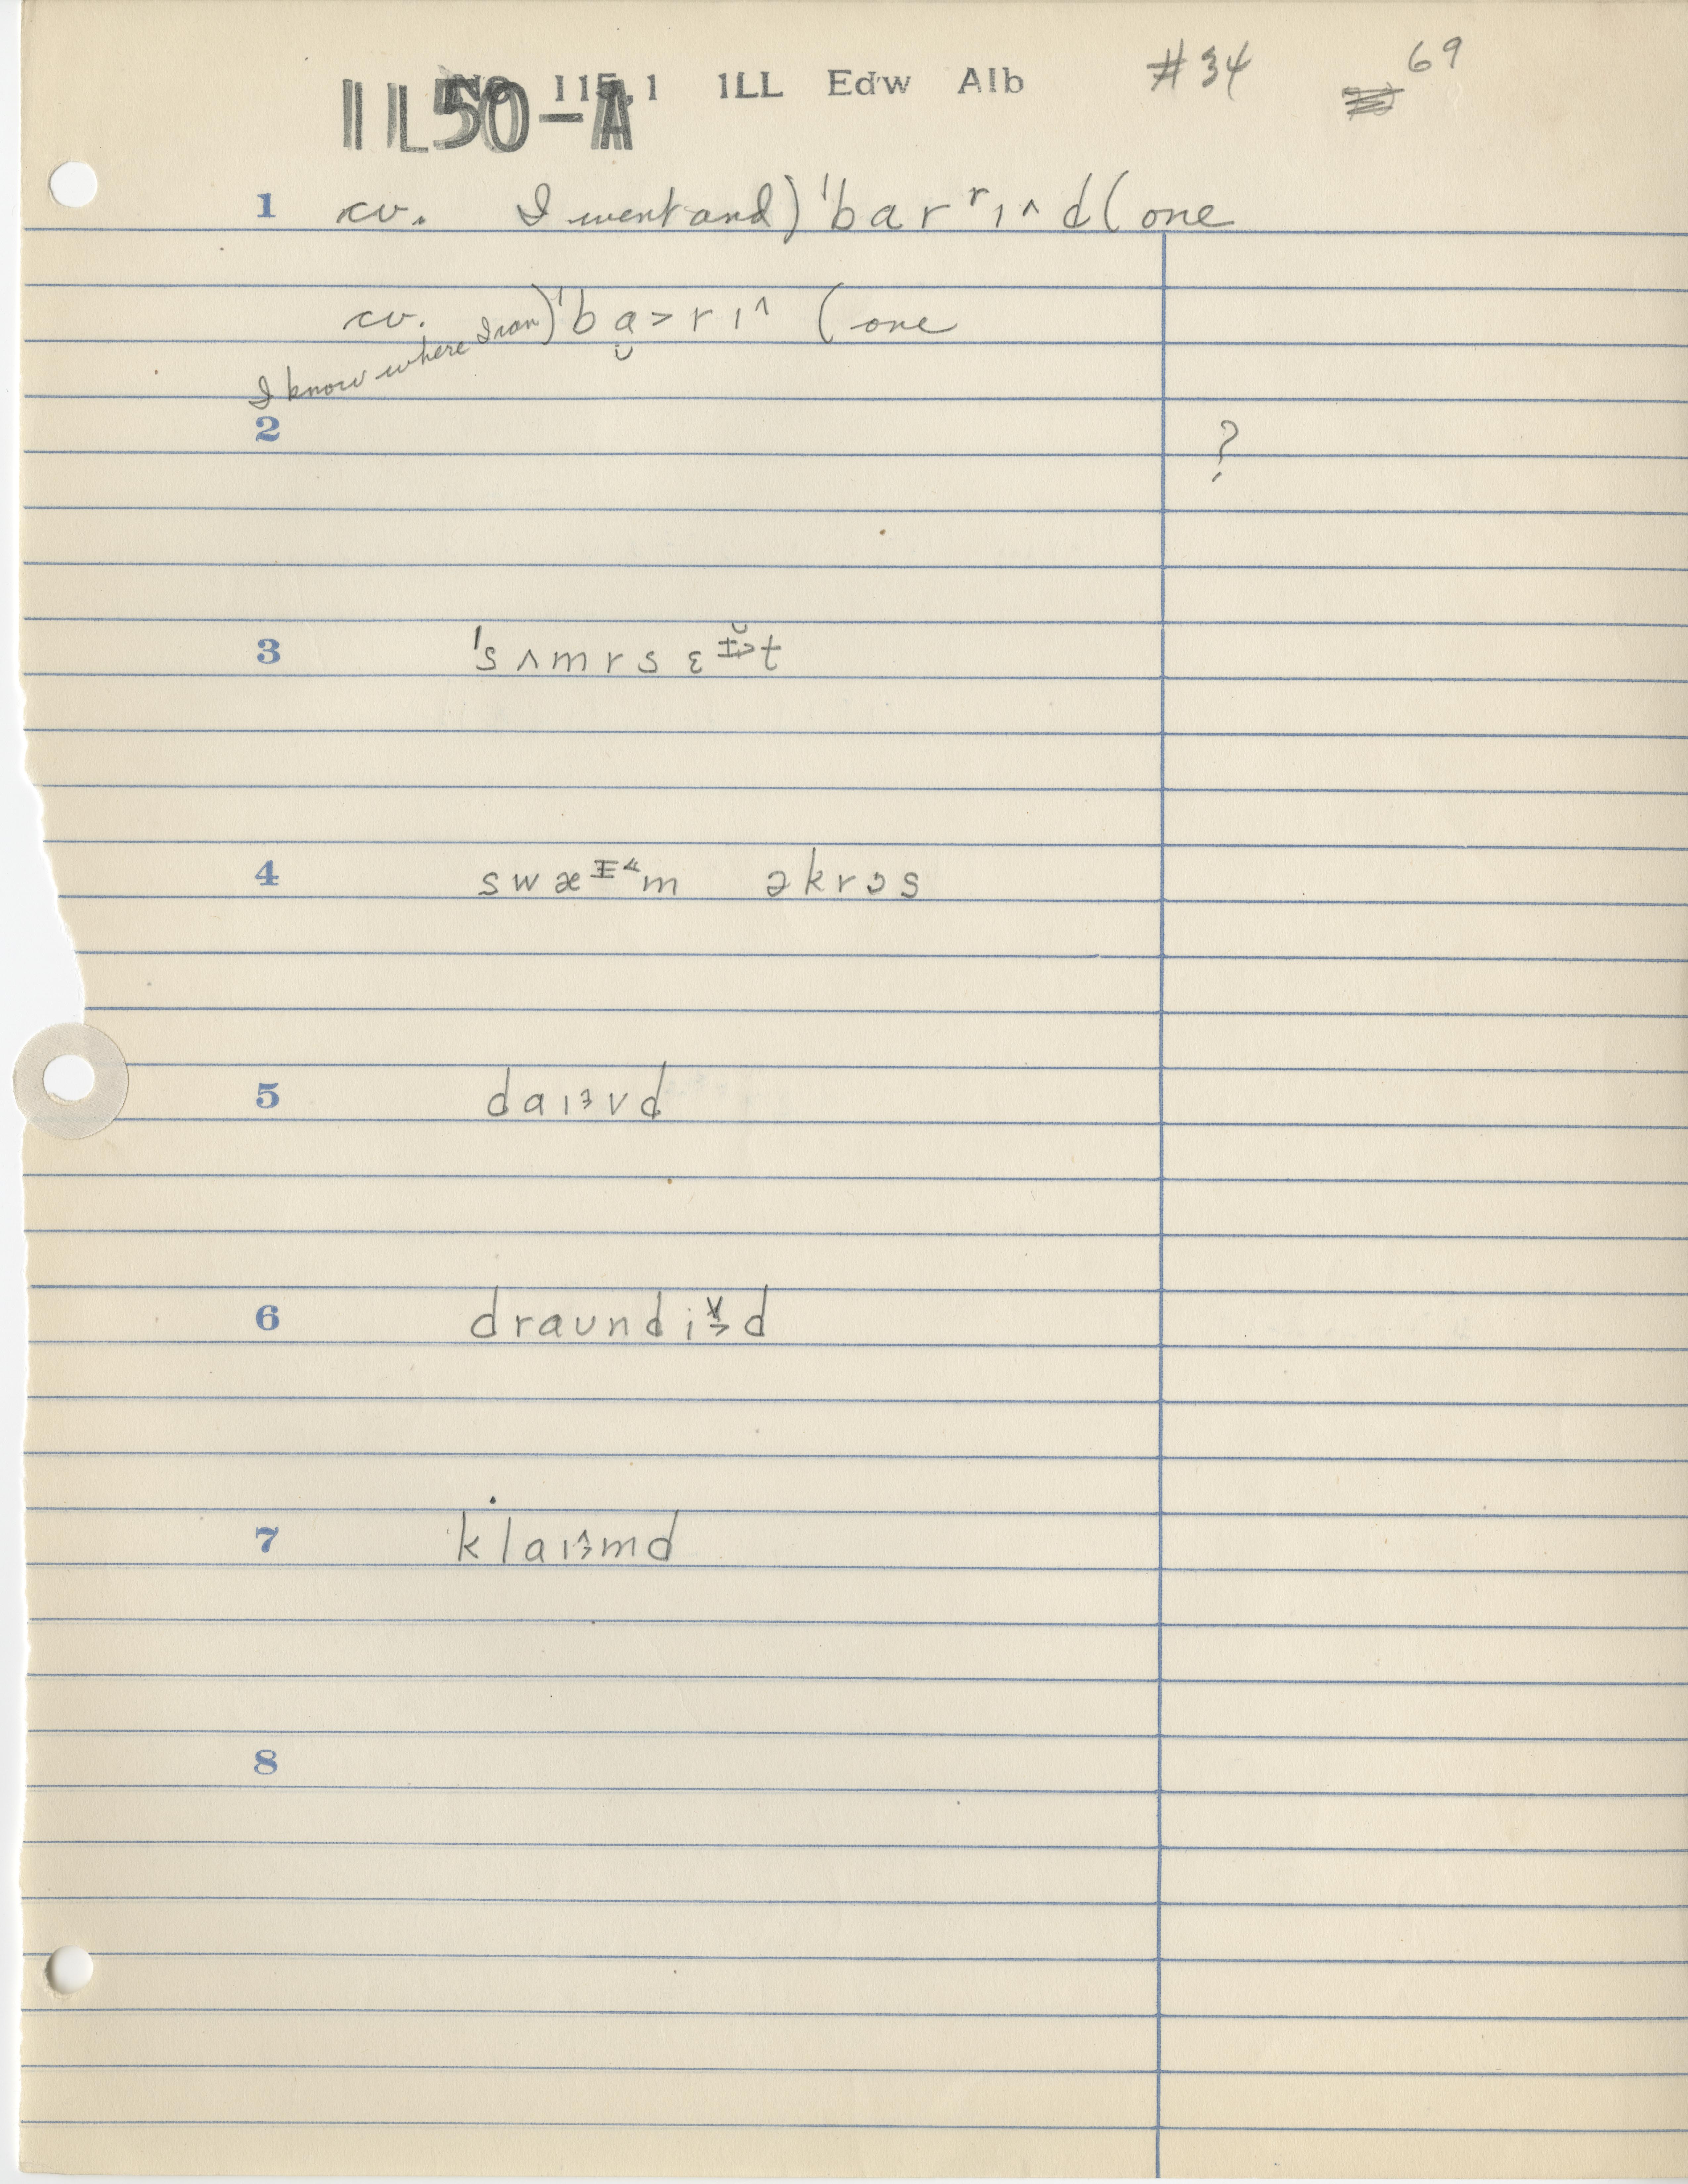 No 115.1 1LL Edw Alb #34 69
IL50-A
1 cv. I went and) ˈbarʳɪ^d (one
cv. I know where I can) ˈbɑ̮>rɪ^ (one
2 ?
3 ˈsʌmrsɛt
4 swæm əkrɔs
5 daɪvd
6 draundid
7 klaɪmd
8